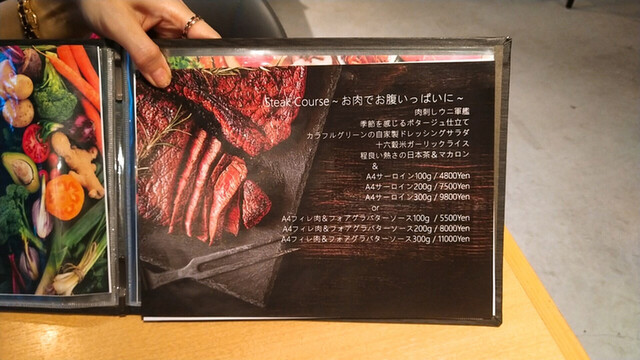 Steak Course～お肉でお腹いっぱいに～
肉刺しウニ軍艦
季節を感じるポタージュ仕立て
カラフルグリーンの自家製ドレッシングサラダ
十六穀米ガーリックライス
程良い熱さの日本茶＆マカロン
&
A4サーロイン100g / 4800Yen
A4サーロイン200g / 7500Yen
A4サーロイン300g / 9800Yen
or
A4フィレ肉＆フォアグラバターソース100g / 5500Yen
A4フィレ肉＆フォアグラバターソース200g / 8000Yen
A4フィレ肉＆フォアグラバターソース300g / 11000Yen